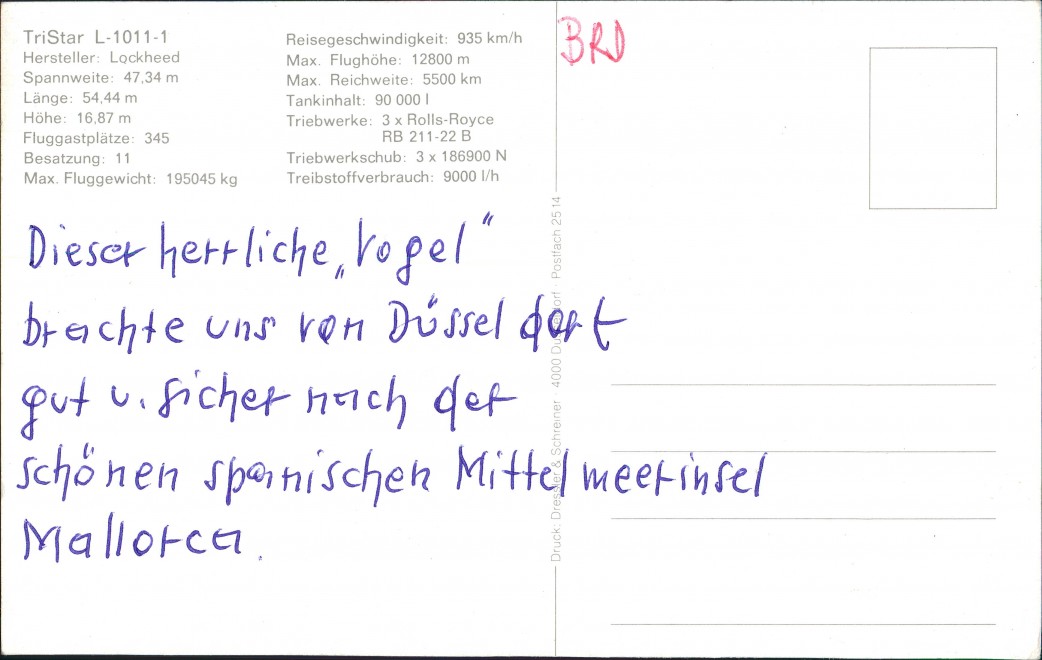 TriStar L-1011-1
Hersteller: Lockheed
Spannweite: 47,34 m
Länge: 54,44 m
Höhe: 16,87 m
Fluggastplätze: 345
Besatzung: 11
Max. Fluggewicht: 195045 kg
Reisegeschwindigkeit: 935 km/h
Max. Flughöhe: 12800 m
Max. Reichweite: 5500 km
Tankinhalt: 90 000 l
Triebwerke: 3 x Rolls-Royce
RB 211-22 B
Triebwerkschub: 3 x 186900 N
Treibstoffverbrauch: 9000 l/h
BRD
Dieser herrliche „Vogel“
brachte uns von Düsseldorf
gut u. sicher nach der
schönen spanischen Mittelmeerinsel
Mallorca.
Druck: Dressler & Schreiner · 4000 Düsseldorf · Postfach 25 14